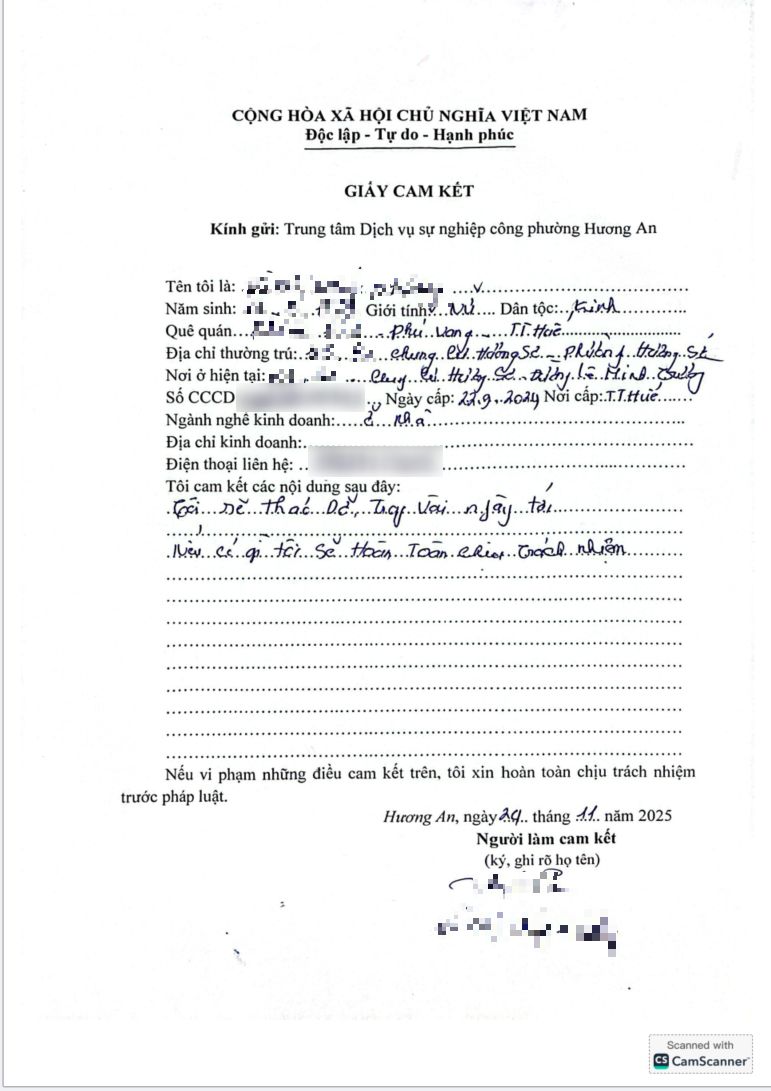 CỘNG HÒA XÃ HỘI CHỦ NGHĨA VIỆT NAM
Độc lập - Tự do - Hạnh phúc
GIẤY CAM KẾT
Kính gửi: Trung tâm Dịch vụ sự nghiệp công phường Hương An
Tên tôi là:
Năm sinh: Giới tính: Nữ Dân tộc: kinh
Quê quán Phú Vang T.T.Huế
Địa chỉ thường trú: chung cư Hương Sơ - Phường Hương Sơ
Nơi ở hiện tại: Chung cư Hương Sơ đường Lê Minh Trường
Số CCCD Ngày cấp: 22.9.2024 Nơi cấp: T.T.Huế
Ngành nghề kinh doanh: ở nhà
Địa chỉ kinh doanh:
Điện thoại liên hệ:
Tôi cam kết các nội dung sau đây:
Tôi sẽ Trong Vài ngày tới
Nếu có gì tôi sẽ Hoàn Toàn chịu trách nhiệm
Nếu vi phạm những điều cam kết trên, tôi xin hoàn toàn chịu trách nhiệm
trước pháp luật.
Hương An, ngày 24 tháng 11 năm 2025
Người làm cam kết
(ký, ghi rõ họ tên)
Scanned with
CS CamScanner